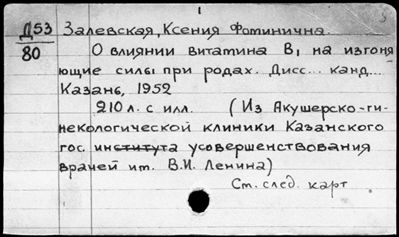 Д53 Залевская, Ксения Фотинична.
80 О влиянии витамина В₁ на изгоня
ющие силы при родах. Дисс... канд...
Казань, 1952
210 л. с илл. (Из Акушерско-ги-
некологической клиники Казанского
гос. института усовершенствования
врачей им. В.И. Ленина)
См. след. карт